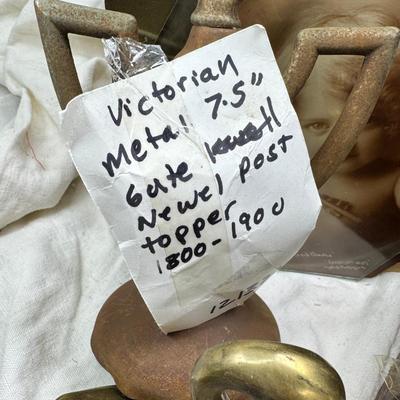 Victorian
metal 7.5"
Gate
Newel post
topper
1800-1900